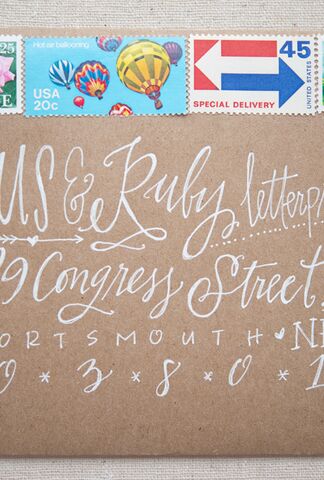 25
E
Hot air ballooning
USA
20c
45
SPECIAL DELIVERY
UNITED STATES
US & Ruby letterp
9 Congress Street
ORTSMOUTH N
0 * 3 * 8 0 * 1